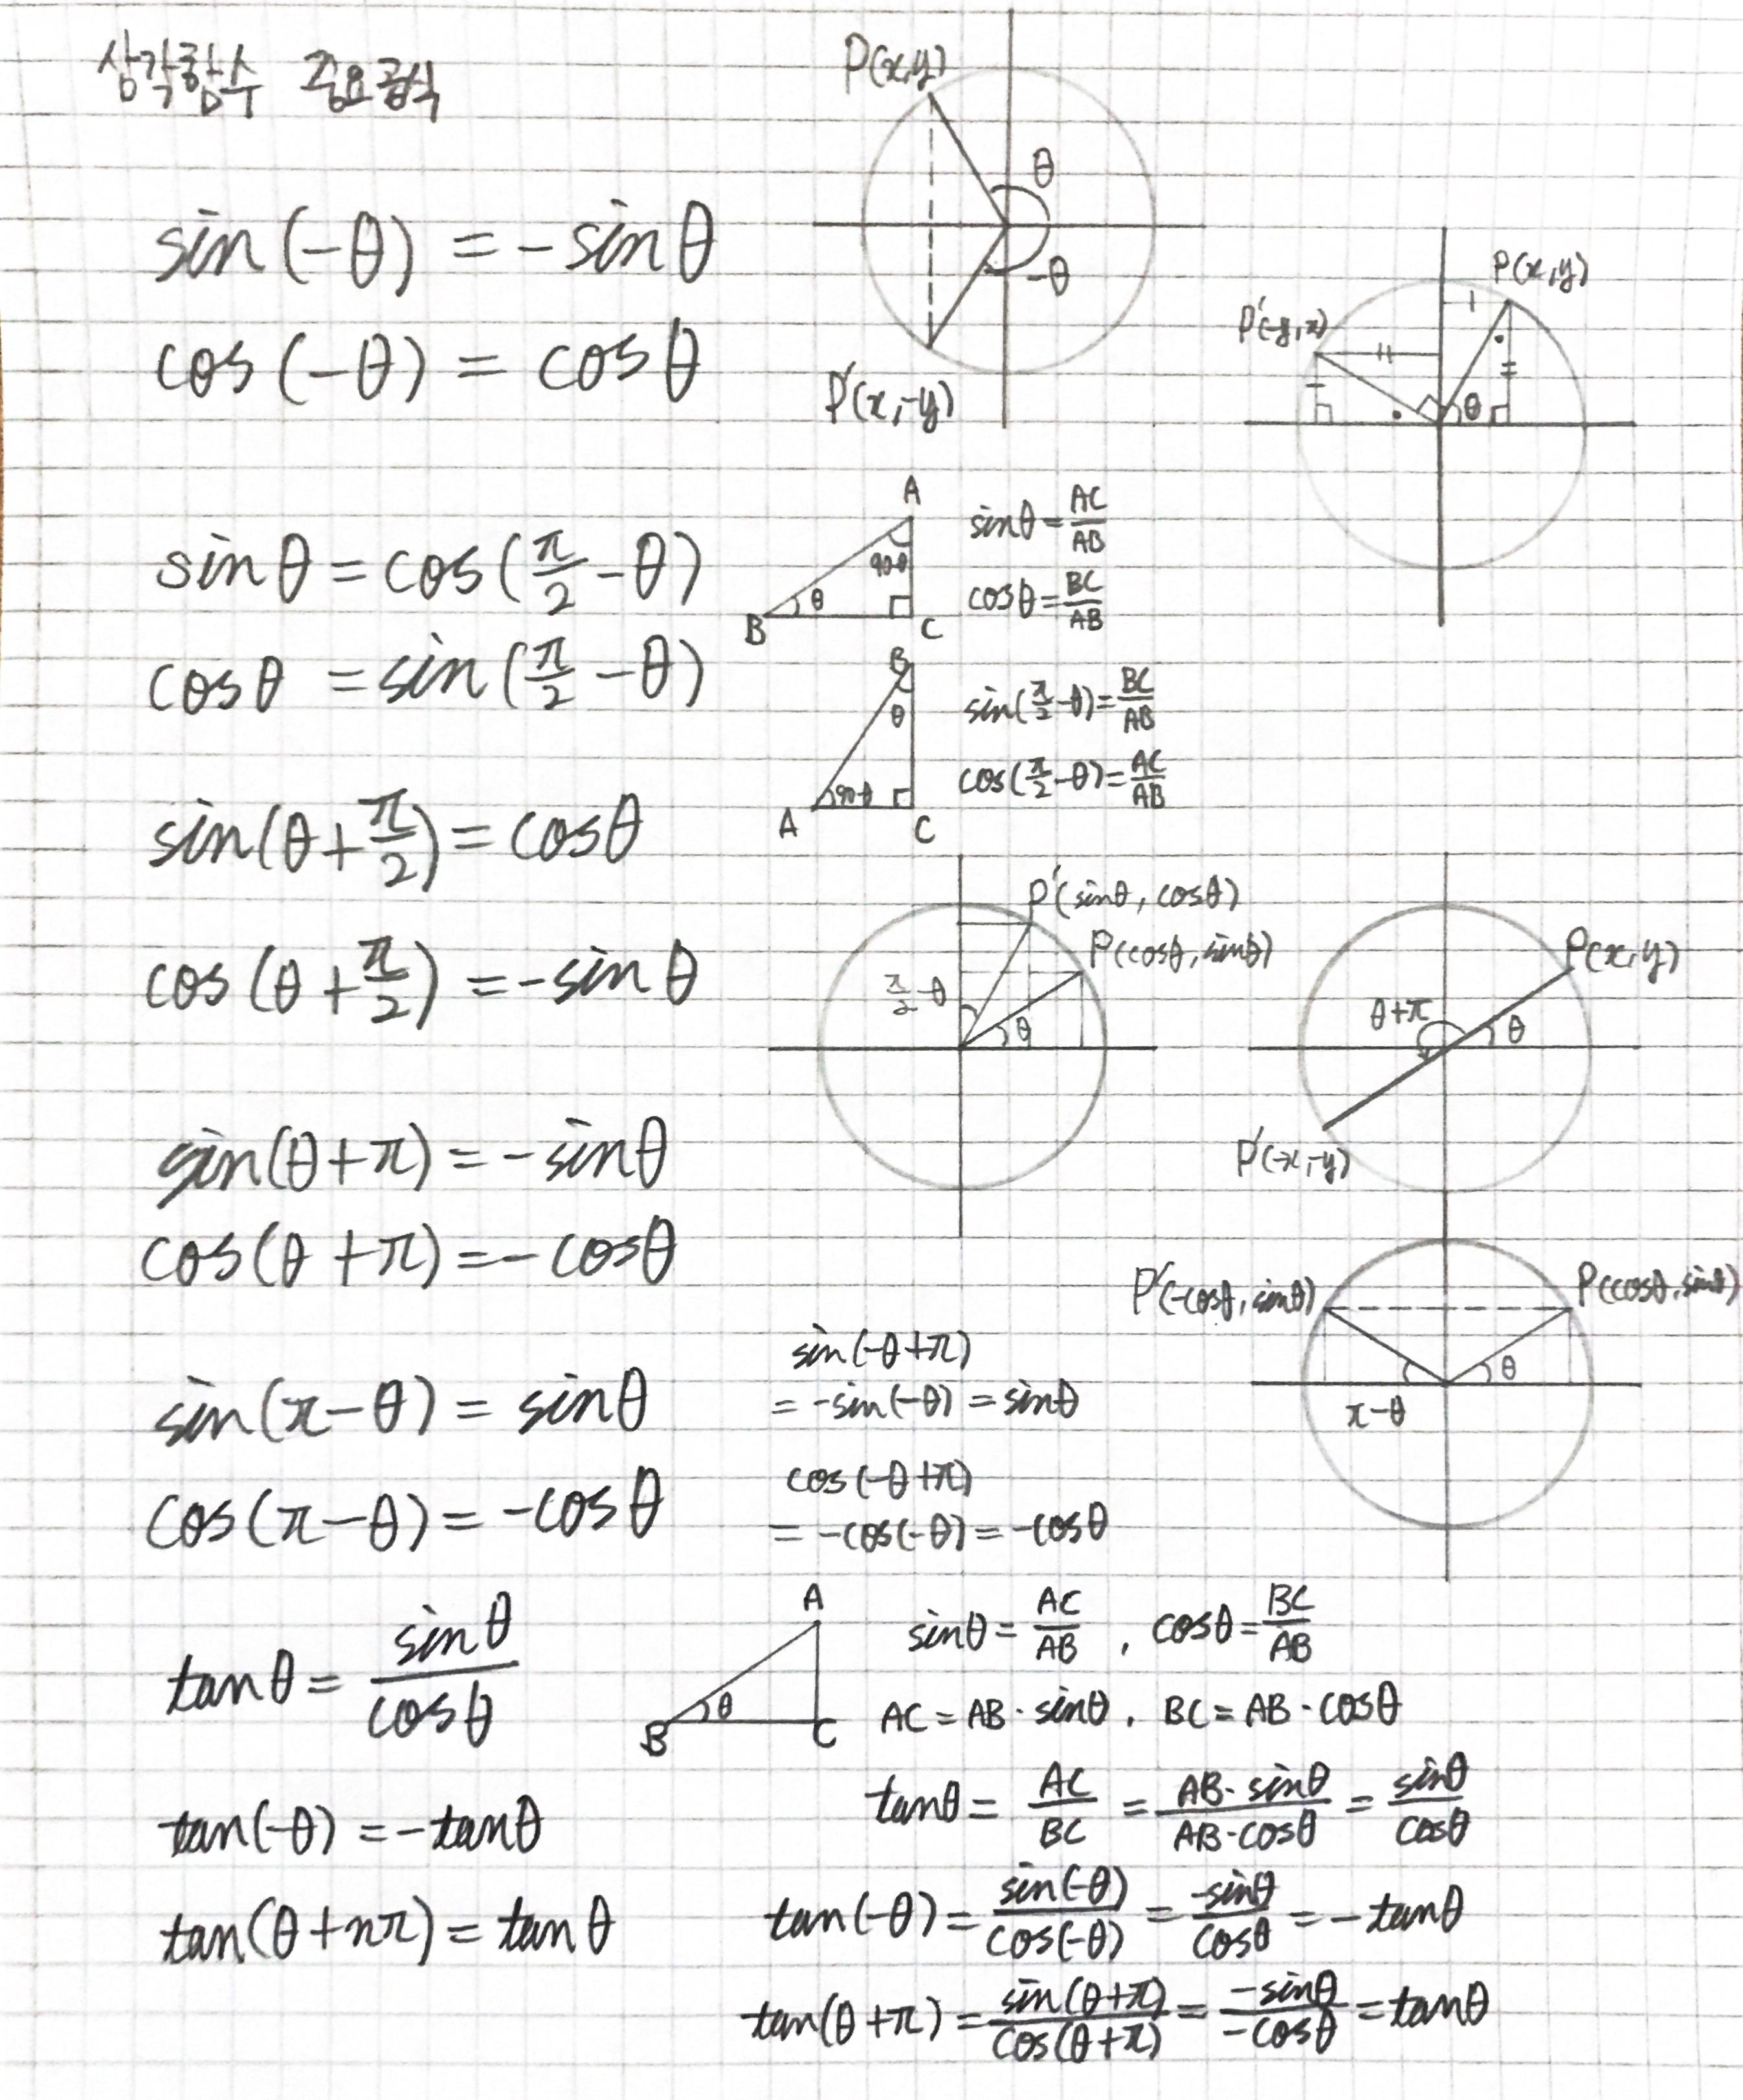 삼각함수 중요공식
P(x,y)
θ
-θ
P'(x,-y)
sin(-θ) = -sinθ
cos(-θ) = cosθ
P(x,y)
P'(-y,x)
θ
sinθ = cos(π/2 - θ)
cosθ = sin(π/2 - θ)
A
90-θ
θ
B
C
sinθ = AC/AB
cosθ = BC/AB
B
θ
90-θ
A
C
sin(π/2 - θ) = BC/AB
cos(π/2 - θ) = AC/AB
sin(θ + π/2) = cosθ
cos(θ + π/2) = -sinθ
P'(sinθ, cosθ)
P(cosθ, sinθ)
π/2 - θ
θ
P(x,y)
θ+π
θ
P'(-x,-y)
sin(θ+π) = -sinθ
cos(θ+π) = -cosθ
P'(-cosθ, sinθ)
P(cosθ, sinθ)
θ
π-θ
sin(π-θ) = sinθ
cos(π-θ) = -cosθ
sin(-θ+π)
= -sin(-θ) = sinθ
cos(-θ+π)
= -cos(-θ) = -cosθ
tanθ = sinθ/cosθ
A
θ
B
C
sinθ = AC/AB , cosθ = BC/AB
AC = AB · sinθ , BC = AB · cosθ
tanθ = AC/BC = AB·sinθ/AB·cosθ = sinθ/cosθ
tan(-θ) = -tanθ
tan(θ+nπ) = tanθ
tan(-θ) = sin(-θ)/cos(-θ) = -sinθ/cosθ = -tanθ
tan(θ+π) = sin(θ+π)/cos(θ+π) = -sinθ/-cosθ = tanθ